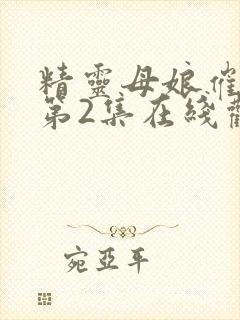 精靈母娘.催
第2集在綫觀
宛亞平